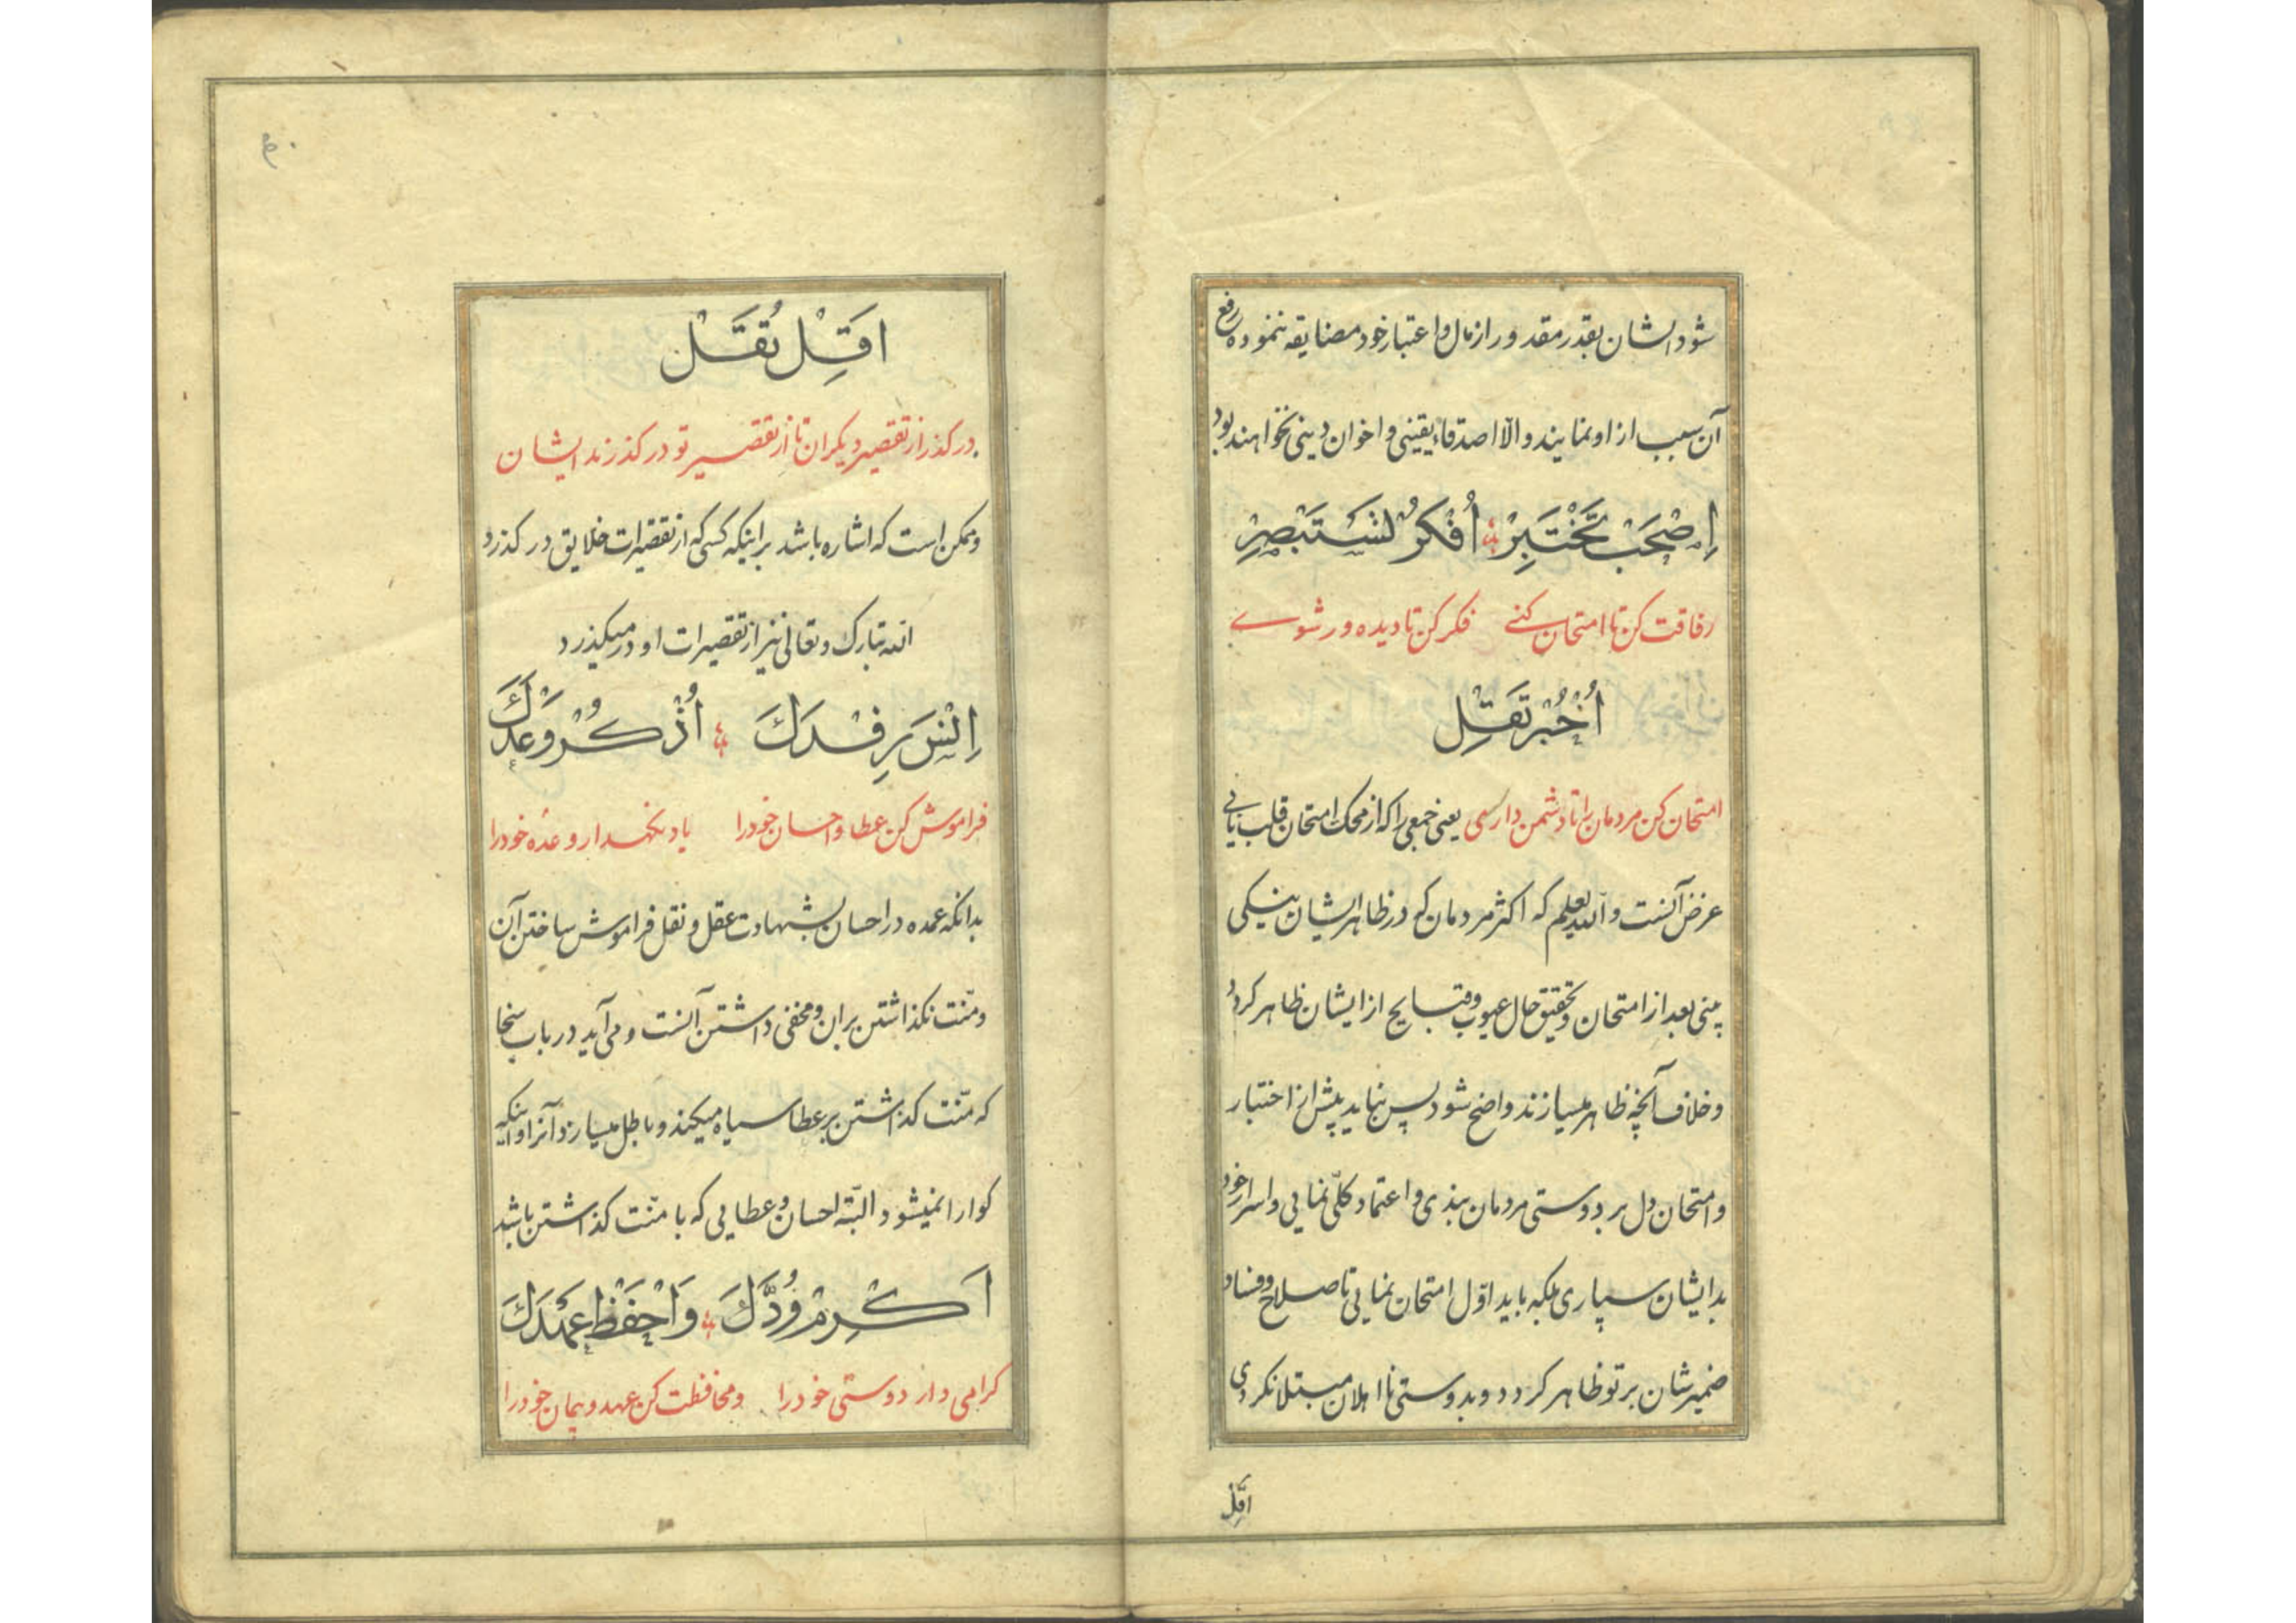 شود ایشان بقدر مقدور از مال و اعتبار خود مضایقه ننموده رفع
آن سبب از او نمایند و الّا اصدقاء یقینی و اخوان دینی نخواهند بود
اِصْحَبْ تَخْتَبِرْ اُفْکُرْ تَسْتَبْصِرْ
رفاقت کن تا امتحان کنے فکر کن تا دیده ور شوے
اُخْبُرْ تَقْلِ
امتحان کن مردمان را تا دشمن دارے یعنی جمعی را که از محک امتحان قلب یابی
غرض آنست والله یعلم که اکثر مردمان که در ظاهر ایشان نیکی
بینی بعد از امتحان و تحقیق حال عیوب و قبایح از ایشان ظاهر کردد
و خلاف آنچه ظاهر میسازند واضح شود پس نباید پیش از اختبار
و امتحان دل بر دوستی مردمان بندی و اعتماد کلّی نمایی و اسرار خود
بدیشان سپاری بلکه باید اوّل امتحان نمایی تا صلاح و فساد
ضمیرشان بر تو ظاهر کردد و بدوستی نااهلان مبتلا نکردی
اَقِلْ
۶۰
اَقِلْ تُقَلْ
در کذر از تقصیر دیکران تا از تقصیر تو در کذرند ایشان
و ممکن است که اشاره باشد براینکه کسی که از تقصیرات خلایق در کذرد
الله تبارک و تعالی نیز از تقصیرات او در میکیذرد
اِنْسَ رِفْدَكَ اُذْکُرْ وَعْدَكَ
فراموش کن عطا و احسان خود را یاد نکهدار وعدهٔ خود را
بدانکه عمده در احسان بشهادت عقل و نقل فراموش ساختن آن
و منّت نکذاشتن بران و مخفی داشتن آنست و می آید در باب سخا
که منّت کذاشتن بر عطا سیاه میکند و باطل میسازد آنرا و اینکه
کوارا نمیشود البتّه احسان و عطایی که با منّت کذاشتن باشد
اَکْرِمْ وُدَّكَ وَاحْفَظْ عَهْدَكَ
کرامی دار دوستی خود را و محافظت کن عهد و پیمان خود را